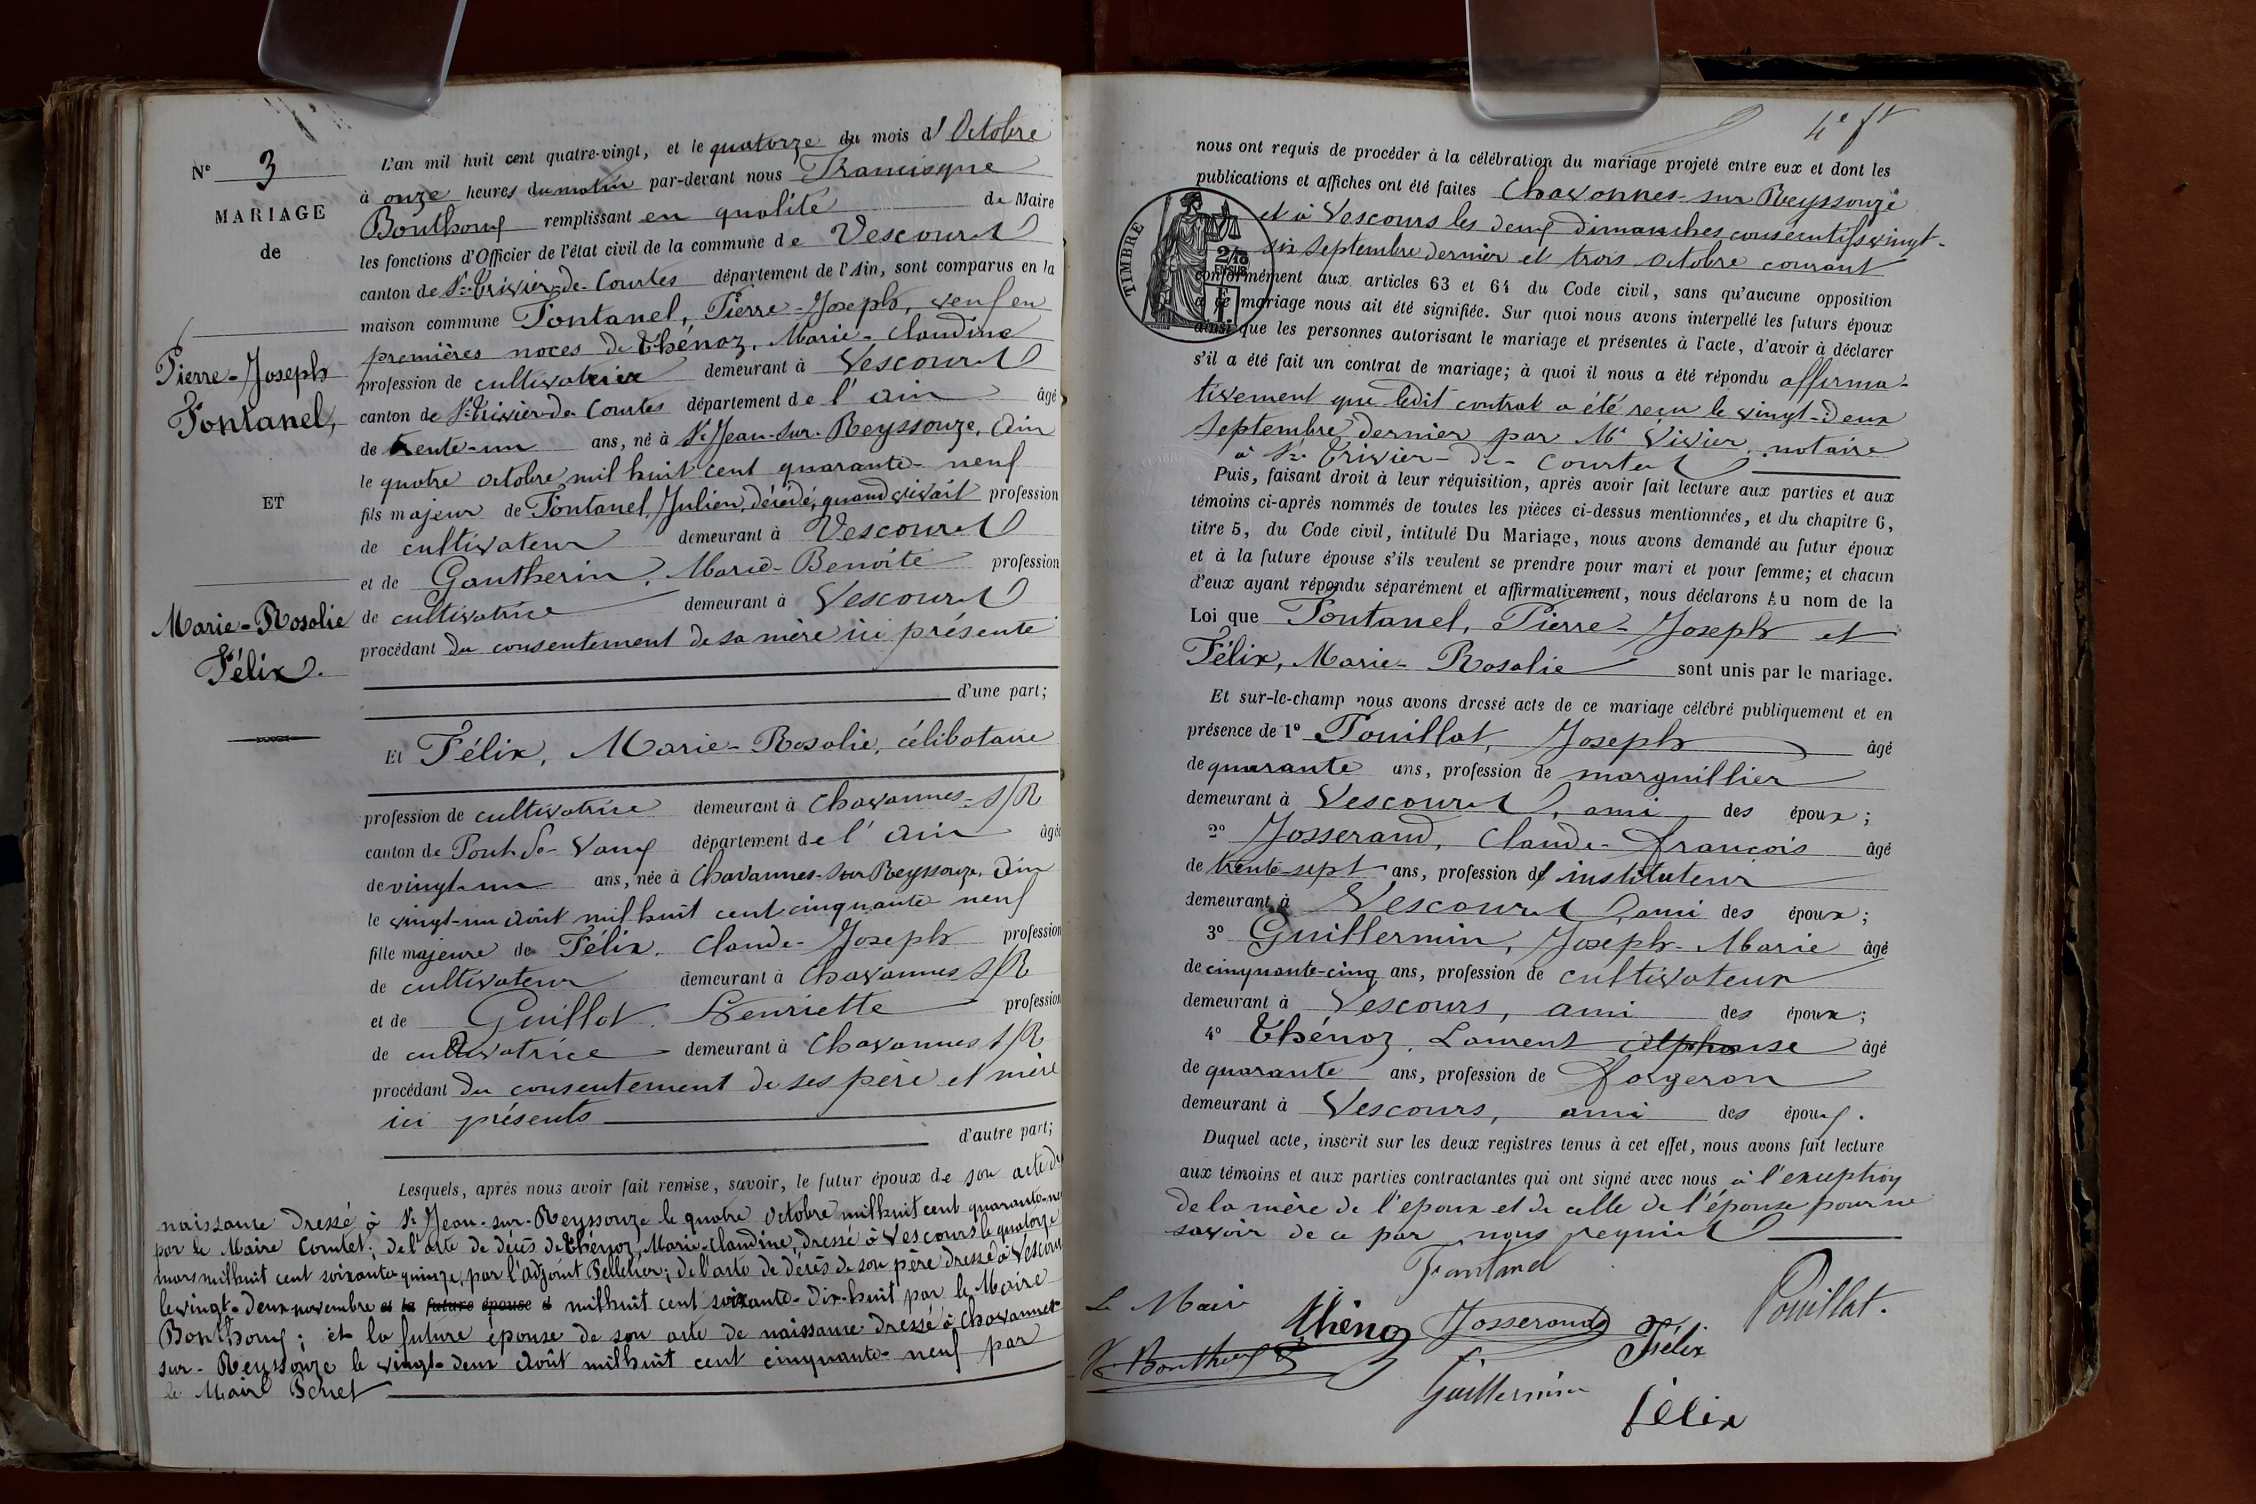 N° 3
MARIAGE
de
Pierre-Joseph
Fontanel,
ET
Marie-Rosalie
Félix.
L'an mil huit cent quatre-vingt, et le quatorze du mois d'Octobre
à onze heures du matin par-devant nous Francisque
Bouthoux remplissant en qualité de Maire
les fonctions d'Officier de l'état civil de la commune de Vescours
canton de St-Trivier-de-Courtes département de l'Ain, sont comparus en la
maison commune Fontanel, Pierre-Joseph, veuf en
premières noces de Thénoz, Marie-Claudine
profession de cultivateur demeurant à Vescours
canton de St-Trivier-de Courtes département de l'Ain âgé
de trente-un ans, né à St-Jean-sur-Reyssouze, Ain
le quatre octobre mil huit cent quarante-neuf
fils majeur de Fontanel, Julien, décédé, quand vivait profession
de cultivateur demeurant à Vescours
et de Gautherin, Marie-Benoite profession
de cultivatrice demeurant à Vescours
procédant du consentement de sa mère ici présente
d'une part;
Et Félix, Marie-Rosalie, célibataire
profession de cultivatrice demeurant à Chavannes-s/R
canton de Pont-de-Vaux département de l'Ain âgée
de vingt-un ans, née à Chavannes-sur Reyssouze, Ain
le vingt-un Août mil huit cent cinquante neuf
fille majeure de Félix, Claude-Joseph profession
de cultivateur demeurant à Chavannes s/R
et de Guillot, Henriette profession
de cultivatrice demeurant à Chavannes s/R
procédant du consentement de ses père et mère
ici présents
d'autre part;
Lesquels, après nous avoir fait remise, savoir, le futur époux de son acte de
naissance dressé à St-Jean-sur-Reyssouze le quatre Octobre mil huit cent quarante-neuf
par le Maire Comtet; de l'acte de décès de Thénoz, Marie-Claudine, dressé à Vescours le quatorze
mars mil huit cent soixante quinze, par l'adjoint Pelletier; de l'acte de décès de son père dressé à Vescours
le vingt-deux novembre et la future épouse d mil huit cent soixante-dix-huit par le Maire
Bouthoux; et la future épouse de son acte de naissance dressé à Chavannes-
sur-Reyssouze le vingt-deux Août mil huit cent cinquante-neuf par
le Maire
4e ft
nous ont requis de procéder à la célébration du mariage projeté entre eux et dont les
publications et affiches ont été faites Chavannes-sur Reyssouze
et à Vescours les deux dimanches consécutifs vingt-
six Septembre dernier et trois Octobre courant
TIMBRE
conformément aux articles 63 et 64 du Code civil, sans qu'aucune opposition
à ce mariage nous ait été signifiée. Sur quoi nous avons interpellé les futurs époux
ainsi que les personnes autorisant le mariage et présentes à l'acte, d'avoir à déclarer
s'il a été fait un contrat de mariage; à quoi il nous a été répondu affirma-
tivement que ledit contrat a été reçu le vingt-deux
Septembre dernier par Me Vivier, notaire
à St-Trivier-de-Courtes
Puis, faisant droit à leur réquisition, après avoir fait lecture aux parties et aux
témoins ci-après nommés de toutes les pièces ci-dessus mentionnées, et du chapitre 6,
titre 5, du Code civil, intitulé Du Mariage, nous avons demandé au futur époux
et à la future épouse s'ils veulent se prendre pour mari et pour femme; et chacun
d'eux ayant répondu séparément et affirmativement, nous déclarons Au nom de la
Loi que Fontanel, Pierre-Joseph et
Félix, Marie-Rosalie sont unis par le mariage.
Et sur-le-champ nous avons dressé acte de ce mariage célébré publiquement et en
présence de 1° Pouillat, Joseph âgé
de quarante ans, profession de marguillier
demeurant à Vescours, ami des époux;
2° Josserand, Claude-François âgé
de trente-sept ans, profession d'instituteur
demeurant à Vescours, ami des époux;
3° Guillermin, Joseph-Marie âgé
de cinquante-cinq ans, profession de cultivateur
demeurant à Vescours, ami des époux;
4° Thénoz, Laurent Alphonse âgé
de quarante ans, profession de forgeron
demeurant à Vescours, ami des époux.
Duquel acte, inscrit sur les deux registres tenus à cet effet, nous avons fait lecture
aux témoins et aux parties contractantes qui ont signé avec nous à l'exception
de la mère de l'époux et de celle de l'épouse pour ne
savoir de ce par nous requis
Le Maire
Thénoz
Josserand
Félix
Pouillat.
Guillermin
félix